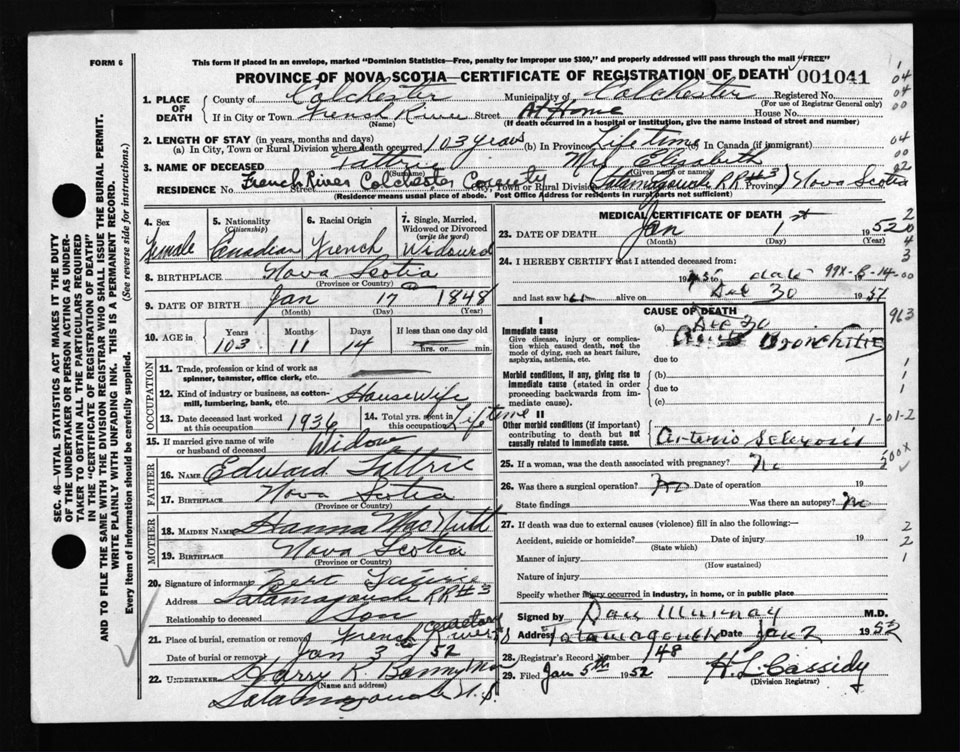 FORM 6
This form if placed in an envelope, marked "Dominion Statistics—Free, penalty for improper use $300," and properly addressed will pass through the mail "FREE"
PROVINCE OF NOVA SCOTIA—CERTIFICATE OF REGISTRATION OF DEATH 001041
1. PLACE OF DEATH County of Colchester Municipality of Colchester Registered No.
(For use of Registrar General only)
If in City or Town French River Street At Home House No.
(Name) (If death occurred in a hospital or institution, give the name instead of street and number)
2. LENGTH OF STAY (in years, months and days)
(a) In City, Town or Rural Division where death occurred 103 years (b) In Province Life time (c) In Canada (if immigrant)
3. NAME OF DECEASED Tattrie Mrs Elizabeth
(Surname) (Given name or names)
RESIDENCE No. French River Colchester County Street City, Town or Rural Division (Tatamagouche RR #3) Province Nova Scotia
(Residence means usual place of abode. Post Office Address for residents in rural parts not sufficient)
4. Sex Female
5. Nationality (Citizenship) Canadian
6. Racial Origin French
7. Single, Married, Widowed or Divorced (write the word) Widowed
8. BIRTHPLACE Nova Scotia
(Province or Country)
9. DATE OF BIRTH Jan 17 1848
(Month) (Day) (Year)
10. AGE in Years 103 Months 11 Days 14 If less than one day old hrs. or min.
OCCUPATION
11. Trade, profession or kind of work as spinner, teamster, office clerk, etc.
12. Kind of industry or business, as cotton-mill, lumbering, bank, etc. House Wife
13. Date deceased last worked at this occupation 1936
14. Total yrs. spent in this occupation Life time
15. If married give name of wife or husband of deceased Widow
FATHER
16. NAME Edward Tattrie
17. BIRTHPLACE Nova Scotia
(Province or Country)
MOTHER
18. MAIDEN NAME Hanna MacNutt
19. BIRTHPLACE Nova Scotia
(Province or Country)
20. Signature of informant Bert Tattrie
Address Tatamagouche RR #3
Relationship to deceased Son
21. Place of burial, cremation or removal French River cemetery
Date of burial or removal Jan 3 52
22. UNDERTAKER Harry K.
(Name and address)
Tatamagouche N.S.
MEDICAL CERTIFICATE OF DEATH
23. DATE OF DEATH Jan 1st 1952
(Month) (Day) (Year)
24. I HEREBY CERTIFY that I attended deceased from
19 to date 19
and last saw h er alive on Dec 30 1951
CAUSE OF DEATH
I
Immediate cause
Give disease, injury or complication which caused death, not the mode of dying, such as heart failure, asphyxia, asthenia, etc.
(a) Dec 30
Bronchitis
due to
Morbid conditions, if any, giving rise to immediate cause (stated in order proceeding backwards from immediate cause).
(b)
due to
(c)
II
Other morbid conditions (if important) contributing to death but not causally related to immediate cause.
Arterio Sclerosis
25. If a woman, was the death associated with pregnancy? No
26. Was there a surgical operation? No Date of operation 19
State findings Was there an autopsy? No
27. If death was due to external causes (violence) fill in also the following:—
Accident, suicide or homicide? Date of injury 19
(State which)
Manner of injury
(How sustained)
Nature of injury
Specify whether injury occurred in industry, in home, or in public place
Signed by Dan Murray M.D.
Address Tatamagouche Date Jan 2 1952
28. Registrar's Record Number 148
29. Filed Jan 5th 1952 H. L. Cassidy
(Division Registrar)
SEC. 46—VITAL STATISTICS ACT MAKES IT THE DUTY
OF THE UNDERTAKER OR PERSON ACTING AS UNDER-
TAKER TO OBTAIN ALL THE PARTICULARS REQUIRED
IN THE "CERTIFICATE OF REGISTRATION OF DEATH"
AND TO FILE THE SAME WITH THE DIVISION REGISTRAR WHO SHALL ISSUE THE BURIAL PERMIT.
WRITE PLAINLY WITH UNFADING INK. THIS IS A PERMANENT RECORD.
Every item of information should be carefully supplied. (See reverse side for instructions.)